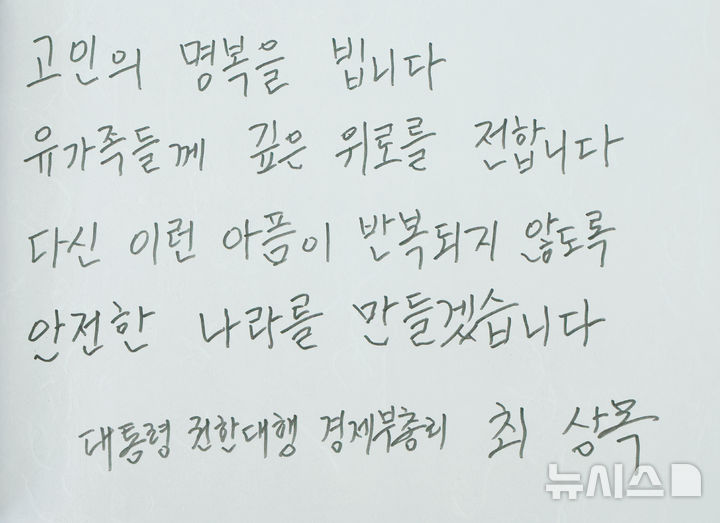 고인의 명복을 빕니다
유가족들께 깊은 위로를 전합니다
다신 이런 아픔이 반복되지 않도록
안전한 나라를 만들겠습니다
대통령 권한대행 경제부총리 최 상목
뉴시스